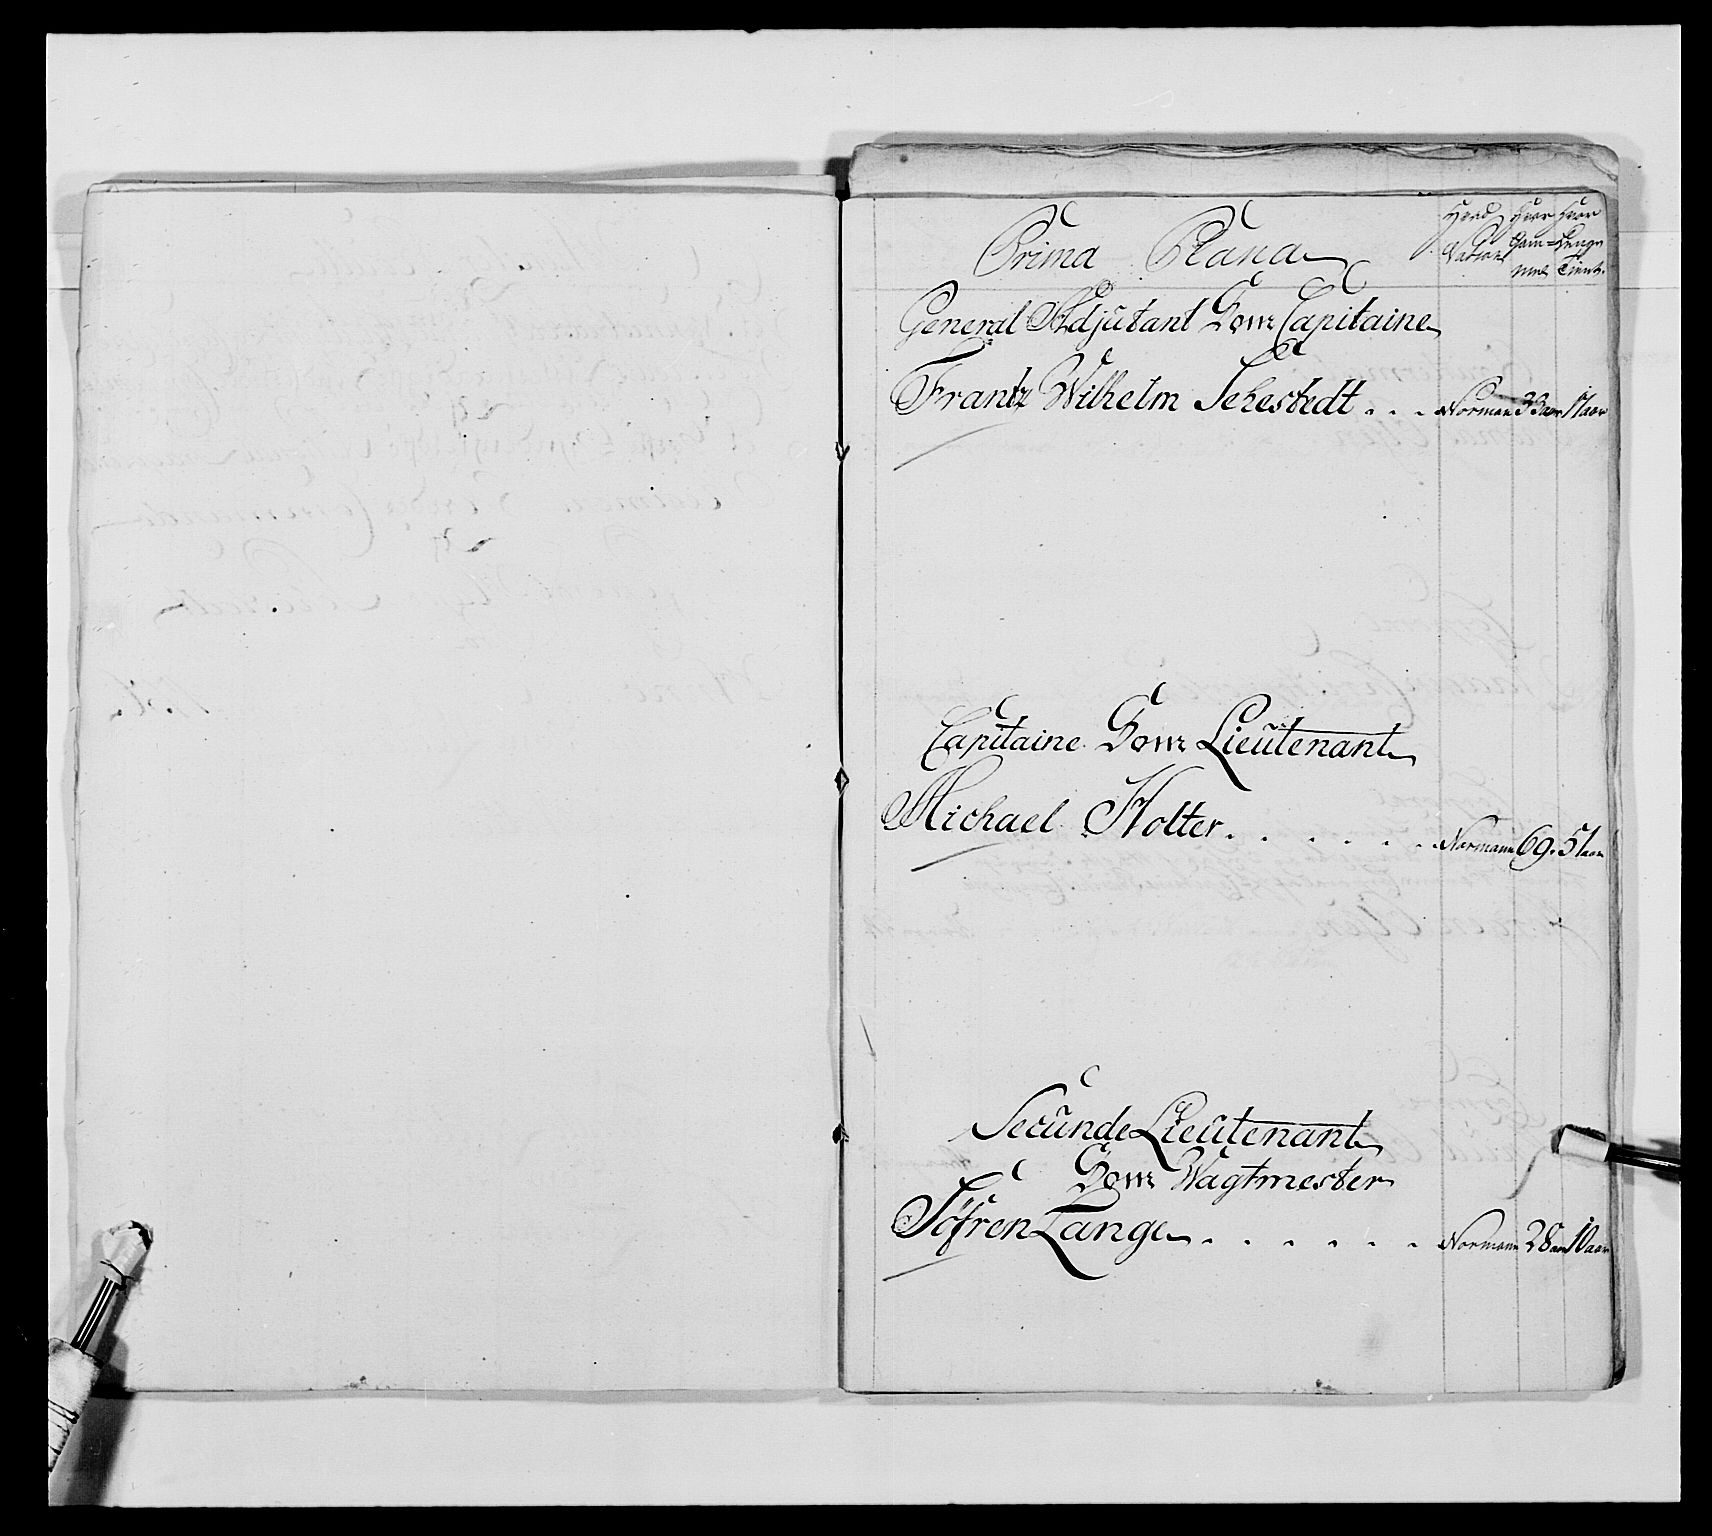 Prima Plana
Hvad Nation
Hvor Gam=mel
Hvor Lenge Tient.
General Adjutant Som Capitaine
Frantz Wilhelm Sehestedt . . . Norman 33 aar 17 aar
Capitaine Som Lieutenant
Michael Holter . . . . . . Normann 69. 51 aar
Secunde Lieutenant
Som Wagtmester
Söfren Lange . . . . . . Normann 28 aar 10 aar